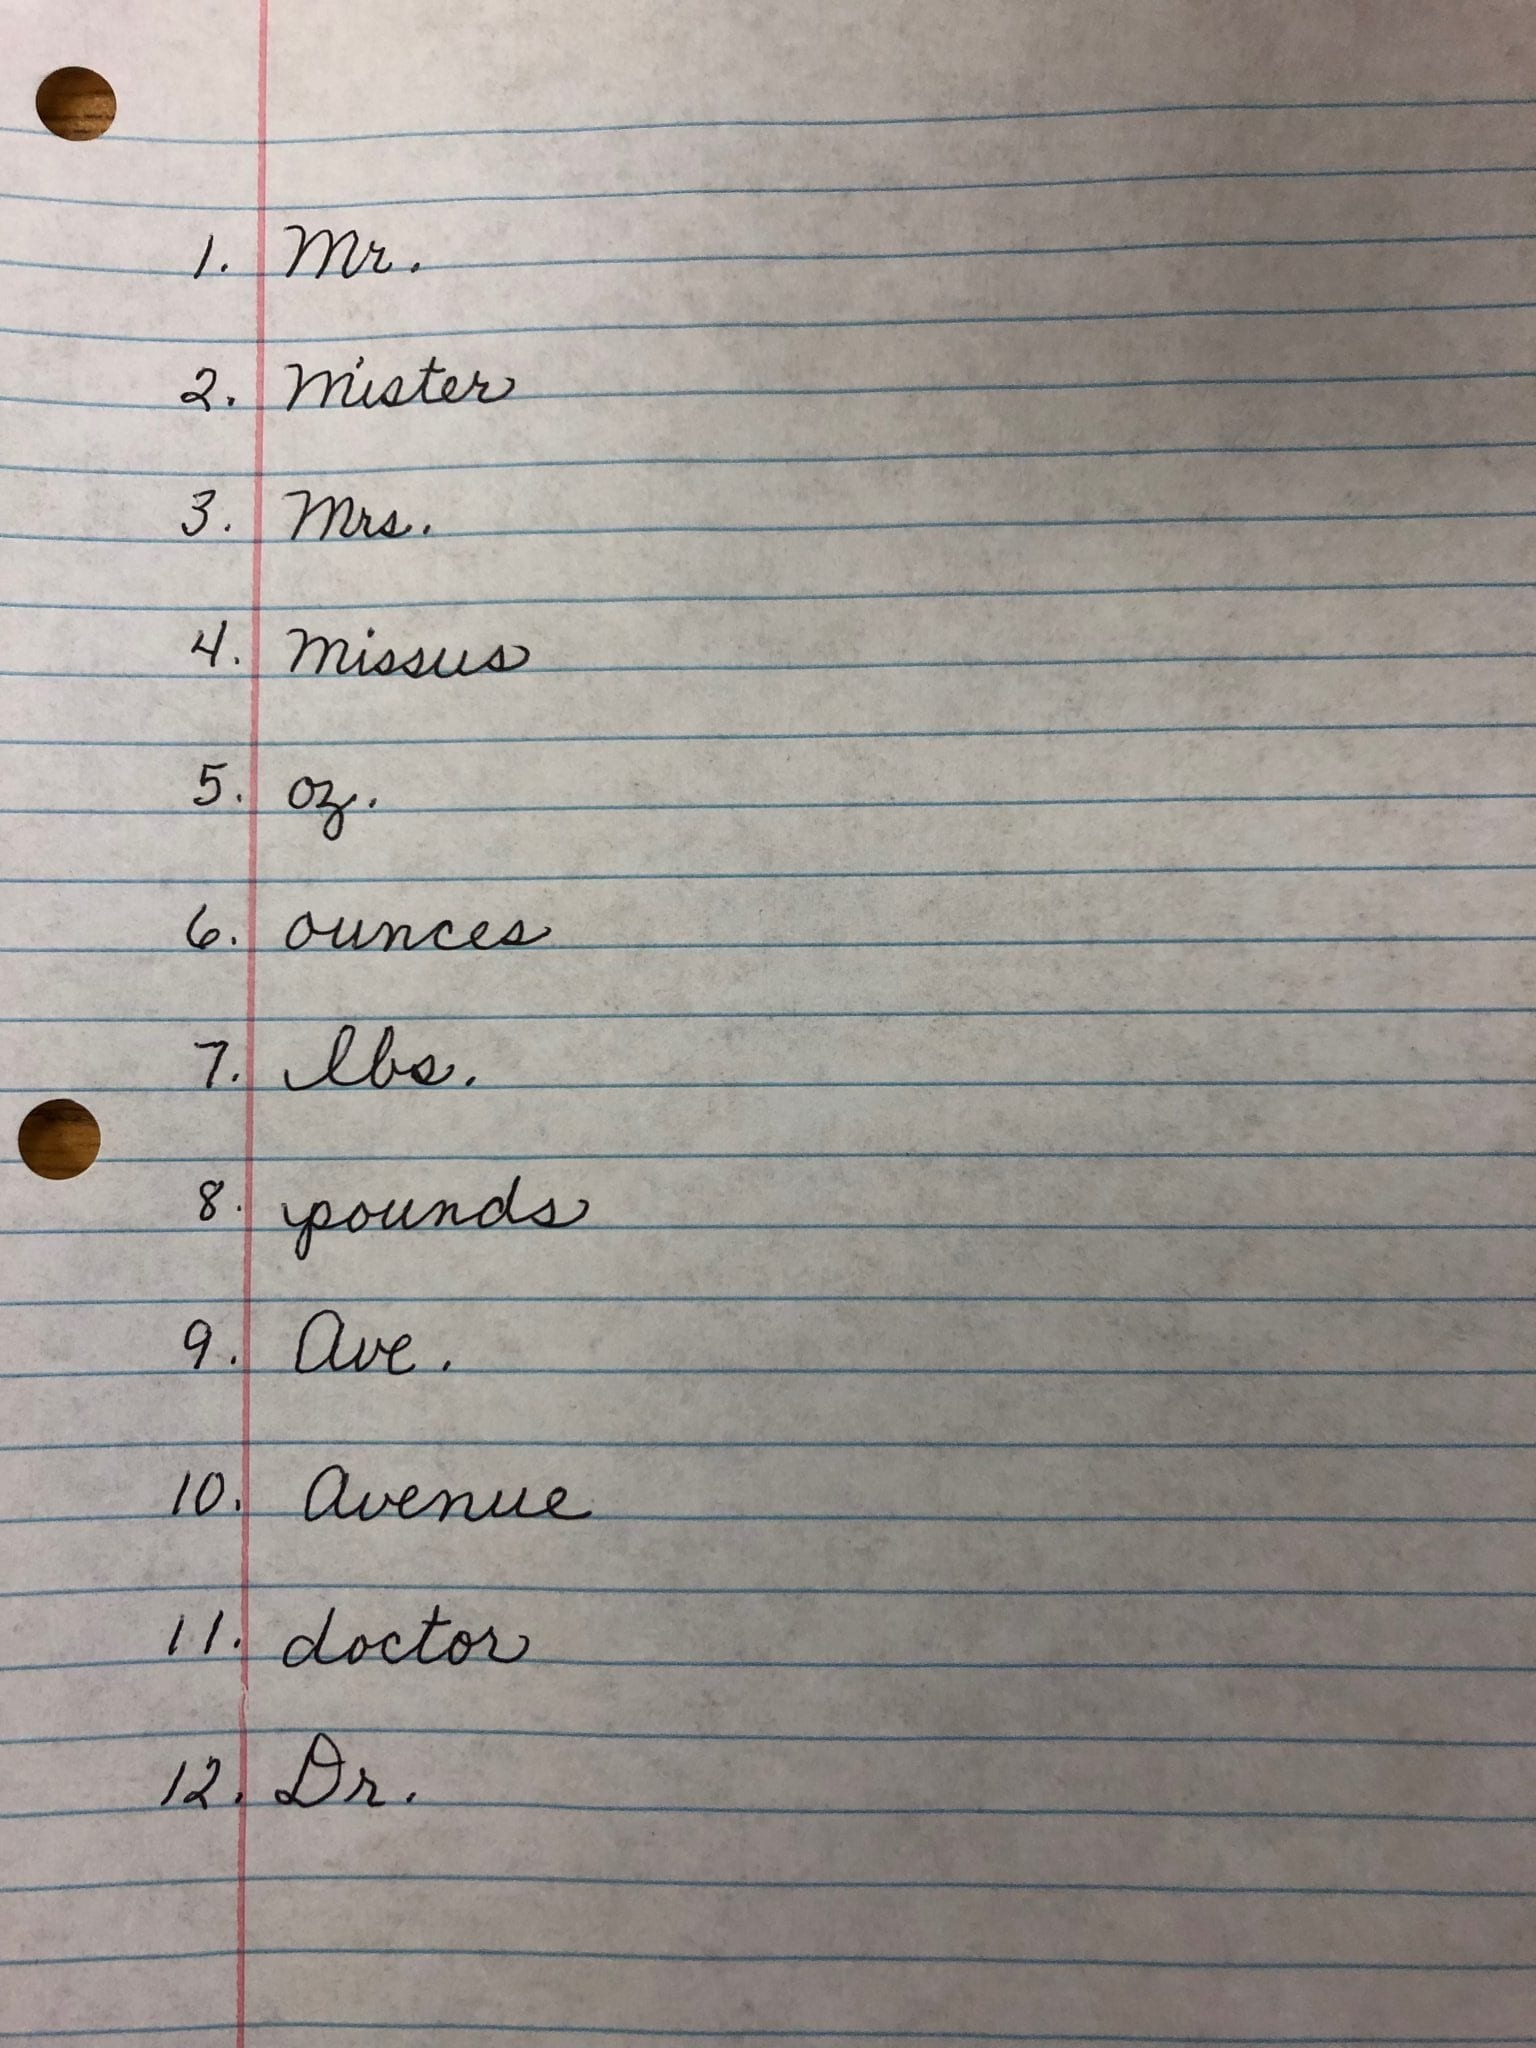 1. Mr.
2. Mister
3. Mrs.
4. Missus
5. oz.
6. ounces
7. lbs.
8. pounds
9. Ave.
10. Avenue
11. doctor
12. Dr.